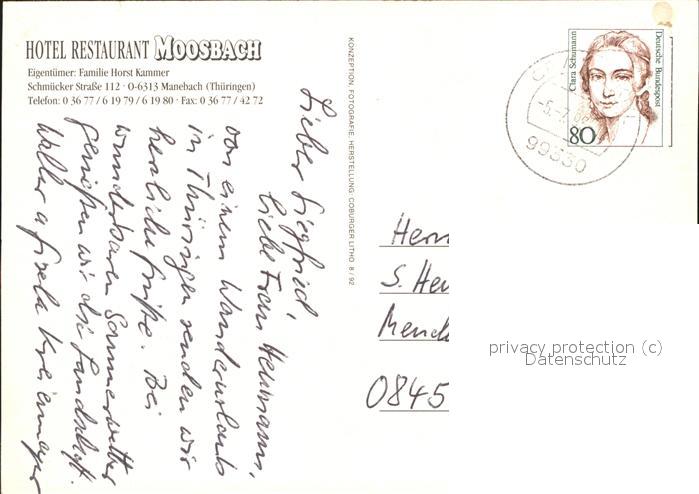 HOTEL RESTAURANT MOOSBACH
Eigentümer: Familie Horst Kammer
Schmücker Straße 112 · O-6313 Manebach (Thüringen)
Telefon: 0 36 77 / 6 19 79 / 6 19 80 · Fax: 0 36 77 / 42 72
Lieber Siegfried,
liebe Frau Heumann,
von einem Wanderurlaub
in Thüringen senden wir
herzliche Grüße. Bei
wunderbarem Sommerwetter
genießen wir die Landschaft.
Walter u Gisela
KONZEPTION, FOTOGRAFIE, HERSTELLUNG: COBURGER LITHO 8 / 92
Clara Schumann
Deutsche Bundespost
80
99330
Herrn
S. Heu
0845
privacy protection (c)
Datenschutz